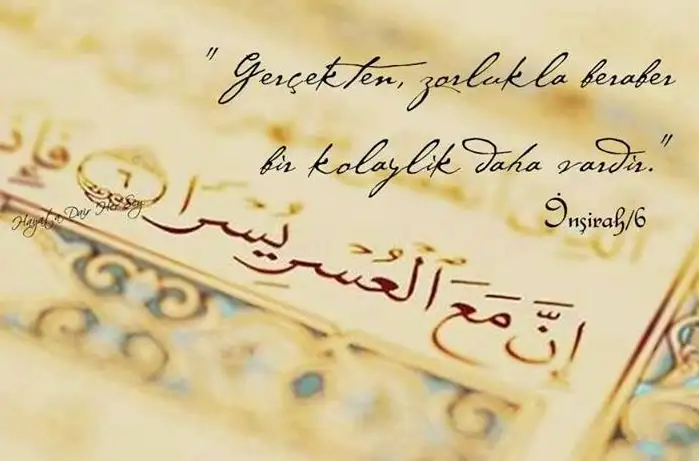 " Gerçekten, zorlukla beraber
bir kolaylik daha vardir."
İnşirah/6
Hayat'a Dair Her Şey
اِنَّ مَعَ الْعُسْرِ يُسْرًا ٦ فَاِذَا